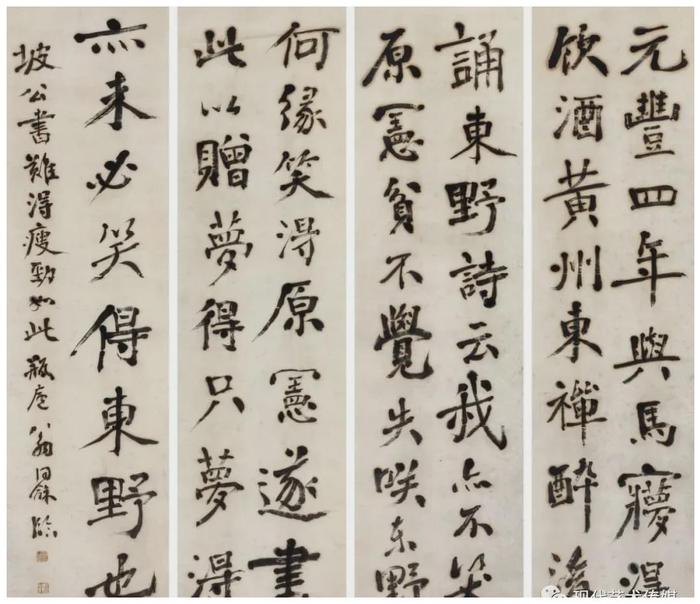 元豐四年與馬㝱得
飲酒黃州東禪醉後
誦東野詩云我亦不笑
原憲貧不覺失咲東野
何緣笑得原憲遂書
此以贈夢得只夢得
亦未必笑得東野也
坡公書難得瘦勁如此瓶庵翁同龢臨
现代艺术传媒